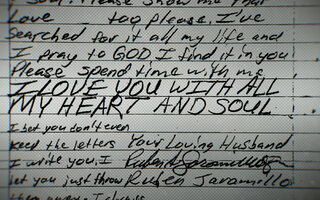 Please show me that
Love too please. I've
Searched for it all my life and
I pray to GOD I find it in you
Please spend time with me
I LOVE YOU WITH ALL
MY HEART AND SOUL
I bet you don't even
Keep the letters Your Loving Husband
I write you. I
let you just throw Rubén Jaramillo